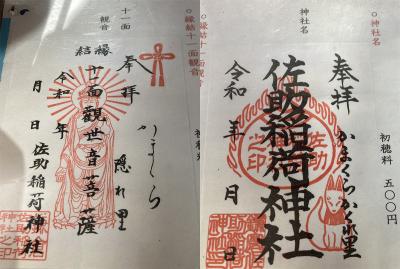 ○神社名
神社名
初穂料 五〇〇円
奉拝
かまくらかくれ里
佐助稲荷神社
令和 年 月 日
○縁結十一面観音
縁結十一面観音
十一面
観音
奉拝
かまくら
隠れ里
縁結
十一面観世音菩薩
令和 年
月 日
佐助稲荷神社